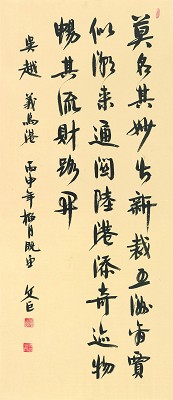 莫名其妙出新裁五洲商賈
似潮来通関陸港添奇迹物
暢其流財路开
吳越 義烏港 丙申年月既望